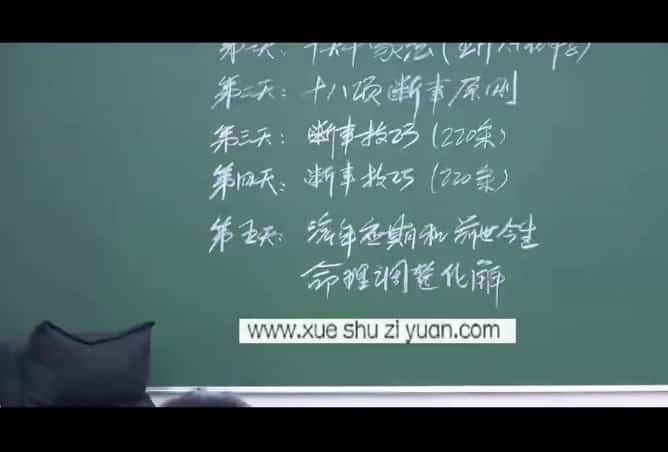 第一天:
第二天: 十八项断事原则
第三天: 断事技巧 (220条)
第四天: 断事技巧 (220条)
第五天: 流年应期和前世今生
命理调整化解
www.xue shu zi yuan.com